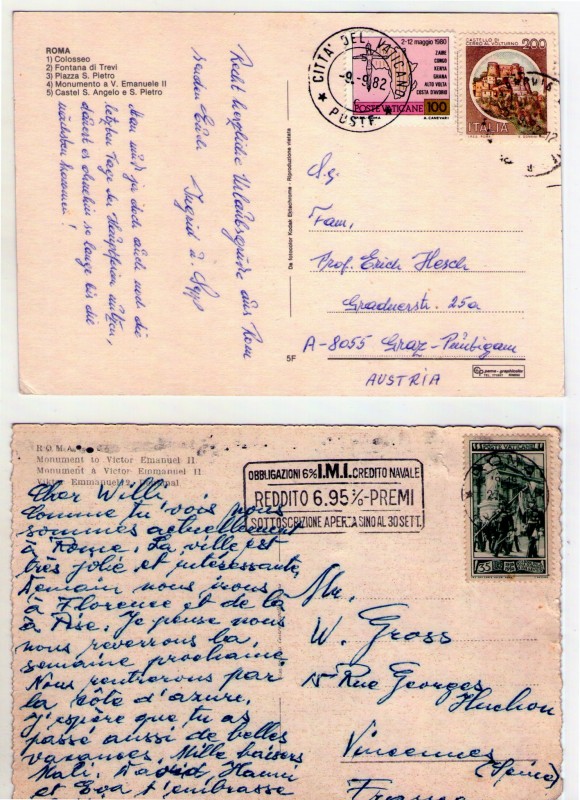 ROMA
1) Colosseo
2) Fontana di Trevi
3) Piazza S. Pietro
4) Monumento a V. Emanuele II
5) Castel S. Angelo e S. Pietro
Recht herzliche Urlaubsgrüße aus Rom
Ingrid u. Sepp
Man muß ja doch auch noch die
letzten Tage der Hauptferien nützen,
dauert es ohnehin so lange bis die
nächsten kommen!
5F
De fotocolor Kodak Ektachrome - Riproduzione vietata
CITTA' DEL VATICANO
-9.-9.82
POSTE
2-12 maggio 1980
ZAIRE
CONGO
KENYA
GHANA
ALTO VOLTA
COSTA D'AVORIO
POSTE VATICANE 100
CASTELLO DI
CERRO AL VOLTURNO
200
ITALIA
Fam.
Prof. Erich Hesch
Gradnerstr. 25a
A-8055 Graz-
AUSTRIA
ROMA
Monument to Victor Emanuel II
Monument à Victor Emmanuel II
Viktor Emmanuel
OBBLIGAZIONI 6% I.M.I. CREDITO NAVALE
REDDITO 6.95%-PREMI
SOTTOSCRIZIONE APERTA SINO AL 30 SETT.
POSTE VATICANE
£35
Cher Willi,
Comme tu vois nous
sommes actuellement
à Rome. La ville est
très jolie et intéressante,
Demain nous irons
à Florence et de là
à Pise. Je pense nous
nous reverrons la
semaine prochaine.
Nous rentrerons par
la côte d'azure.
J'espère que tu as
passé aussi de belles
vacances. Mille baisers
Mali. David, Hanni
et Eva t'embrasse
Mr.
W. Gross
15 Rue Georges
Huchon
Vincennes
(Seine)
France